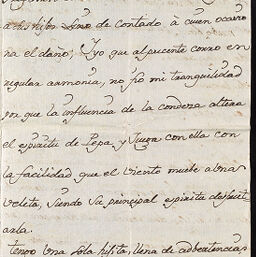 a los hijos sino de contado à cuen ocacio
na el daño; Yo que al presente corro en
regular armonia, no fio mi tranquilidad
por que la influencia de la condeza altera
el espiritu de Pepa, y Juega con ella con
la facilidad que el viento muebe a una
veleta, siendo su principal espiritu disfrut
arla.
tengo Una sola hijita, llena de adbertencias,